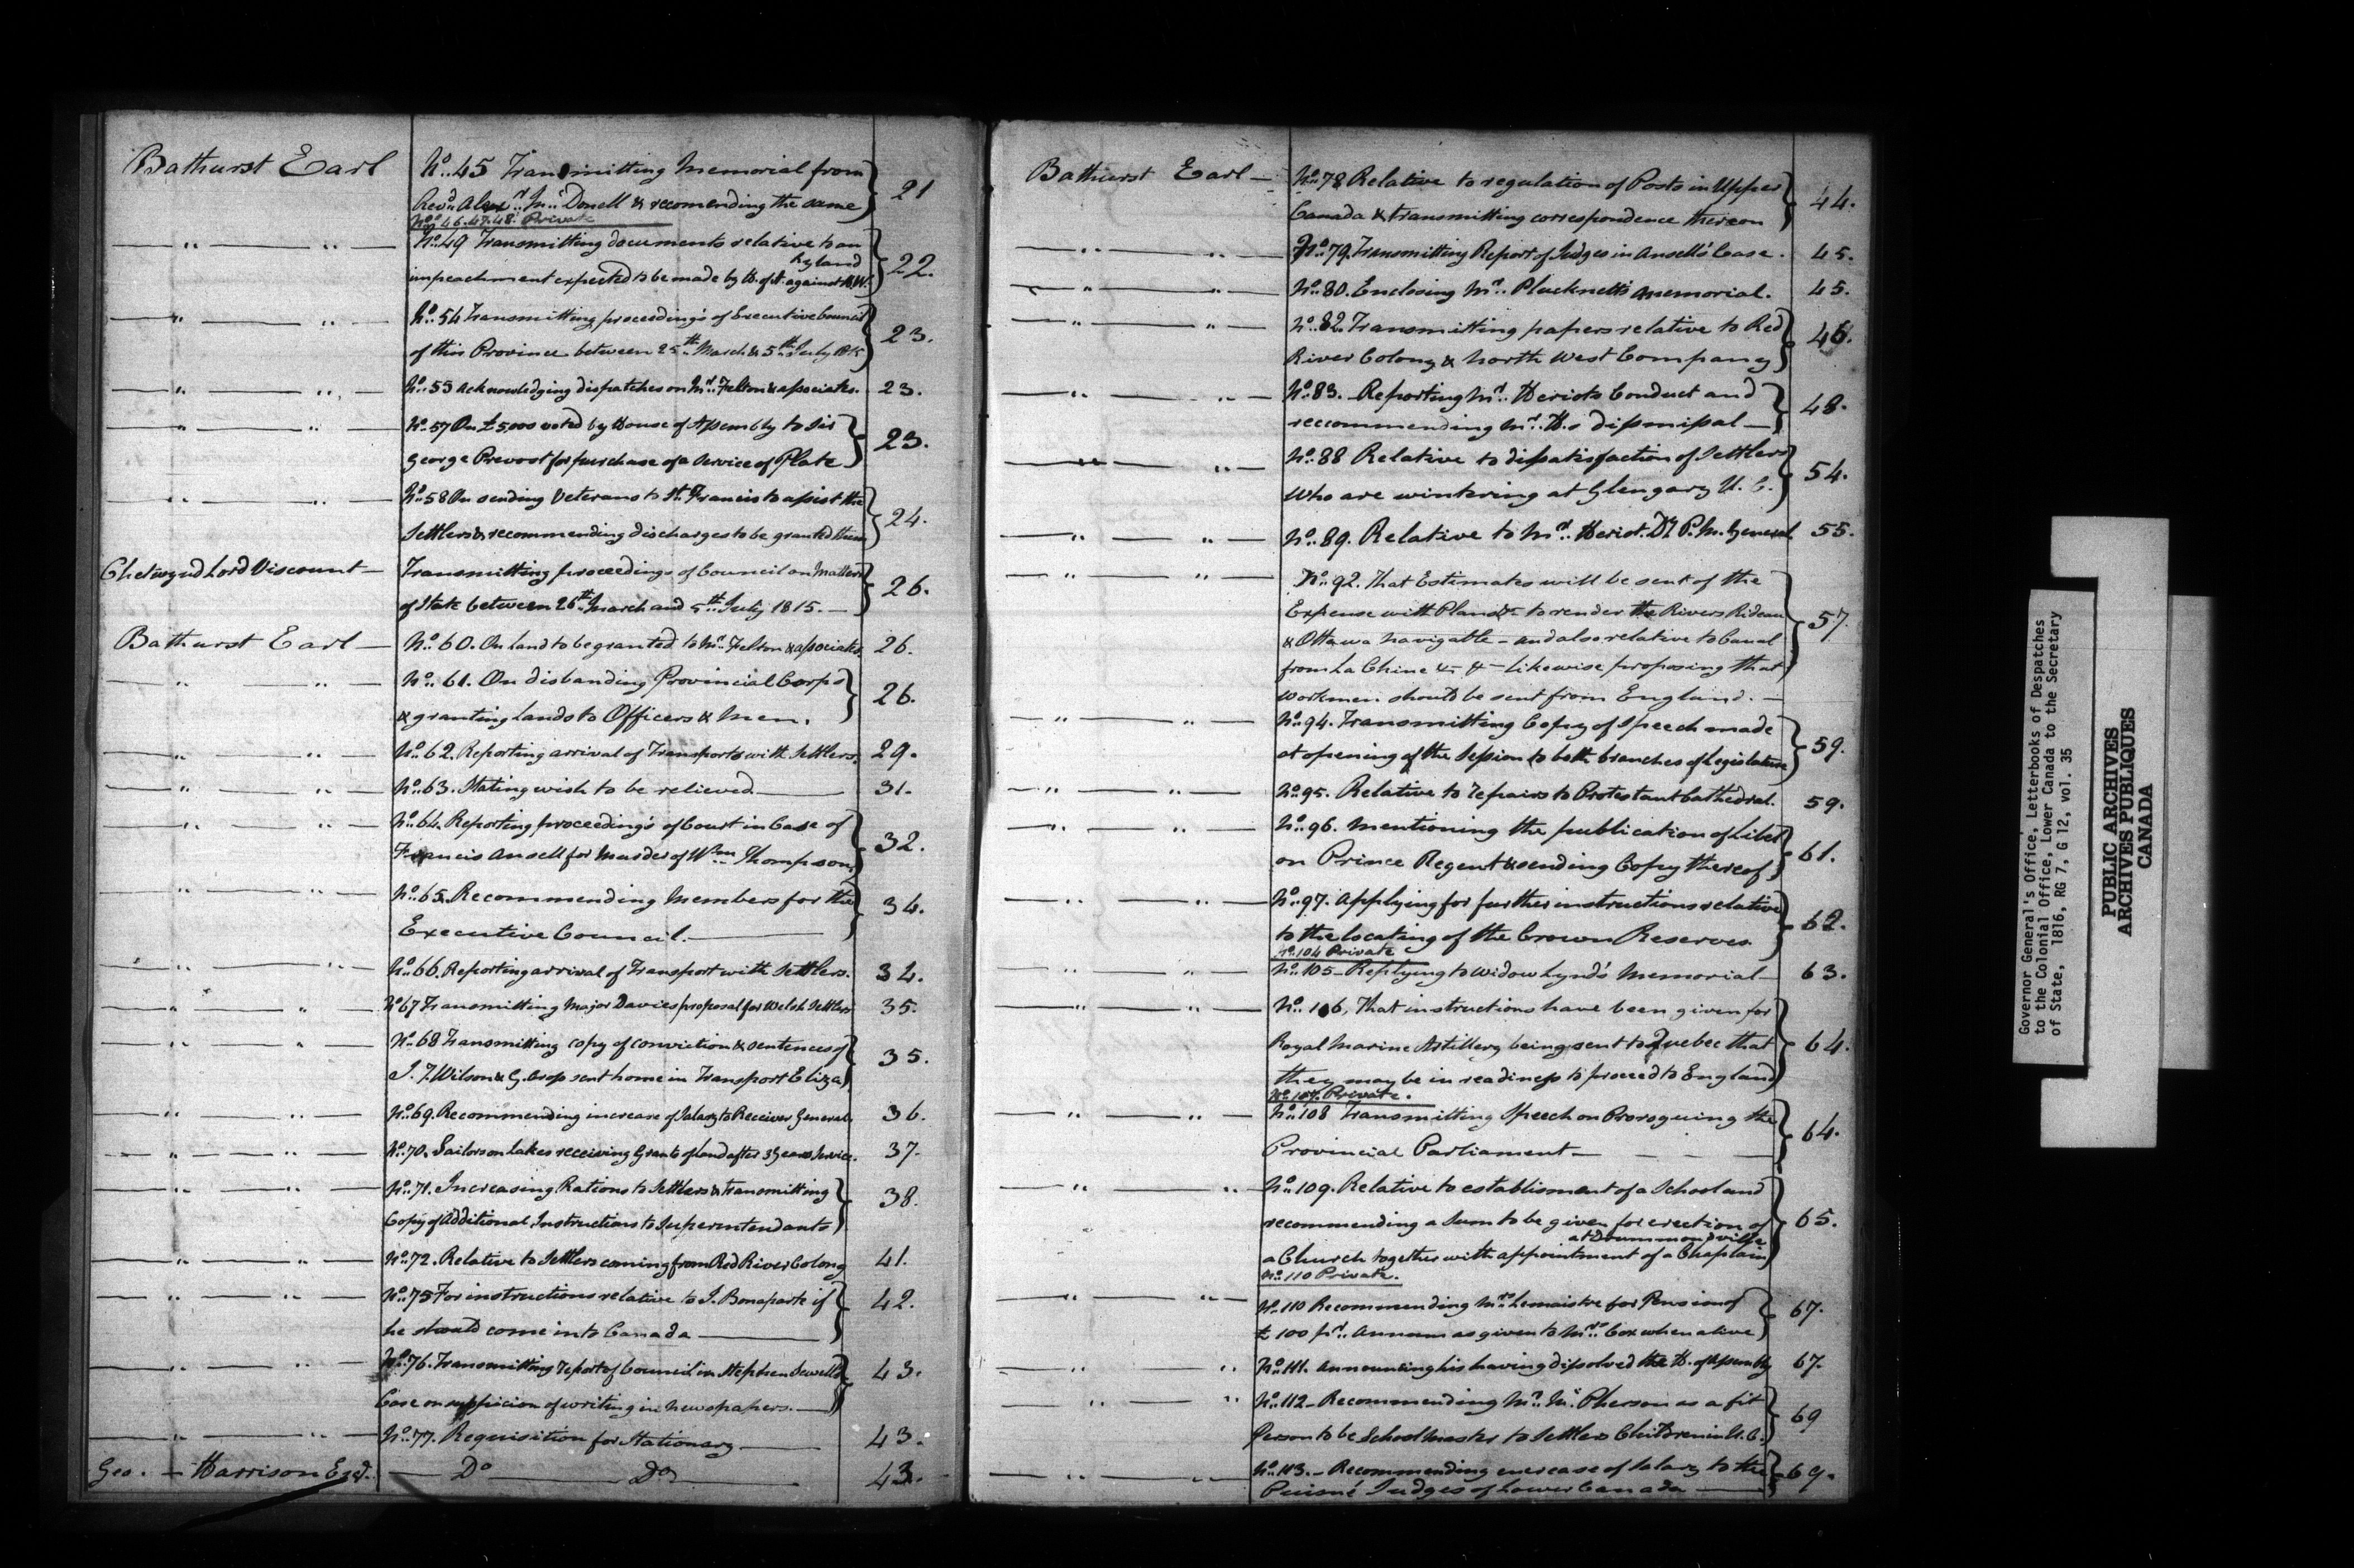 Bathurst Earl
No. 45 Transmitting Memorial from
Revd. Alexr. Mc. Donell & recomending the same } 21
Nos. 46. 47. 48. Private
— " — " — No. 49 Transmitting documents relative to an
Ryland
impeachment expected to be made by H. of A. against H.W. } 22.
— " — " — No. 54 Transmitting proceeding's of Executive Council
of this Province between 25th March & 5th July 1815 } 23.
— " — " — No. 55 Acknowledging dispatches on Mr. Felton & associates. 23.
— " — " — No. 57 On £5,000 voted by House of Assembly to Sir
George Prevost for purchase of a Service of Plate } 23.
— " — " — No. 58 On sending Veterans to St. Francis to assist the
Settlers & recommending discharges to be granted them } 24.
Chetwynd Lord Viscount — Transmitting proceedings of Council on Matters
of State between 26th March and 5th July 1815. — } 26.
Bathurst Earl — No. 60. On land to be granted to Mr. Felton & associates. 26.
— " — " — No. 61. On disbanding Provincial Corps
& granting lands to Officers & Men. } 26.
— " — " — No. 62. Reporting arrival of Transports with Settlers. 29.
— " — " — No. 63. Stating wish to be relieved — 31.
— " — " — No. 64. Reporting proceeding's of Court in Case of
Francis Ansell for Murder of Wm. Thompson } 32.
— " — " — No. 65. Recommending Members for the
Executive Council. — } 34.
— " — " — No. 66. Reporting arrival of Transport with Settlers. 34.
— " — " — No. 67 Transmitting Major Davies proposal for Welsh Settlers 35.
— " — " — No. 68 Transmitting copy of conviction & sentences of
J. T. Wilson & G. Crop sent home in Transport Eliza } 35.
— " — " — No. 69. Recommending increase of Salary to Receiver General. 36.
— " — " — No. 70. Sailors on Lakes receiving Grants of land after 3 years Service. 37.
— " — " — No. 71. Increasing Rations to Settlers & transmitting
Copy of Additional Instructions to Superintendants } 38.
— " — " — No. 72. Relative to Settlers coming from Red River Colony 41.
— " — " — No. 75 For instructions relative to J. Bonaparte if
he should come into Canada — } 42.
— " — " — No. 76. Transmitting report of Council in Stephen Sewell's
Case on suspicion of writing in Newspapers. — } 43.
— " — " — No. 77. Requisition for Stationary — 43.
Geo. — Harrison Esqr. — Do — Do — 43.
Bathurst Earl — No. 78 Relative to regulation of Posts in Upper
Canada & transmitting correspondence thereon } 44.
— " — " — No. 79. Transmitting Report of Judges in Ansell's Case. 45.
— " — " — No. 80. Enclosing Mr. Plucknett's memorial. 45.
— " — " — No. 82. Transmitting papers relative to Red
River Colony & North West Company } 46.
— " — " — No. 83. Reporting Mr. Heriots Conduct and
reccommending Mr. H.s dismissal — } 48.
— " — " — No. 88 Relative to dissatisfaction of Settlers
who are wintering at Glengary U. C. } 54.
— " — " — No. 89. Relative to Mr. Heriot. Dy. P. M. General. 55.
— " — " — No. 92. That Estimates will be sent of the
Expense with Plans &c to render the Rivers Rideau
& Ottawa navigable — and also relative to Canal
from La Chine &c &c — Likewise proposing that
workmen should be sent from England. — } 57.
— " — " — No. 94. Transmitting Copy of Speech made
at opening of the Session to both branches of Legislature } 59.
— " — " — No. 95. Relative to repairs to Protestant Cathedral. 59.
— " — " — No. 96. Mentioning the publication of Libel
on Prince Regent & sending Copy thereof } 61.
— " — " — No. 97. Applying for further instructions relative
to the locating of the Crown Reserves. } 62.
No. 104 Private
— " — " — No. 105 — Replying to Widow Lynd's Memorial — 63.
— " — " — No. 106, That instructions have been given for
Royal Marine Artillery being sent to Quebec that
they may be in readiness to proceed to England } 64.
No. 107. Private.
— " — " — No. 108 Transmitting Speech on Proroguing the
Provincial Parliament — } 64.
— " — " — No. 109. Relative to establisment of a School and
recommending a Sum to be given for erection of
at Drummondville
a Church together with appointment of a Chaplain } 65.
No. 110 Private.
— " — " — No. 110 Recommending Mrs. Lemaistre for Pension of
£100 pr. Annum as given to Mrs. Cox when alive } 67.
— " — " No. 111. Announcing his having dissolved the H. of Assembly 67.
" — " No. 112 — Recommending Mr. Mc. Pherson as a fit
Person to be Schoolmaster to Settlers Children in U. C. } 69
— " — " — No. 113. — Recommending encrease of Salary to the
Puisné Judges of Lower Canada — } 69.
Governor General's Office, Letterbooks of Despatches
to the Colonial Office, Lower Canada to the Secretary
of State, 1816, RG 7, G 12, vol. 35
PUBLIC ARCHIVES
ARCHIVES PUBLIQUES
CANADA